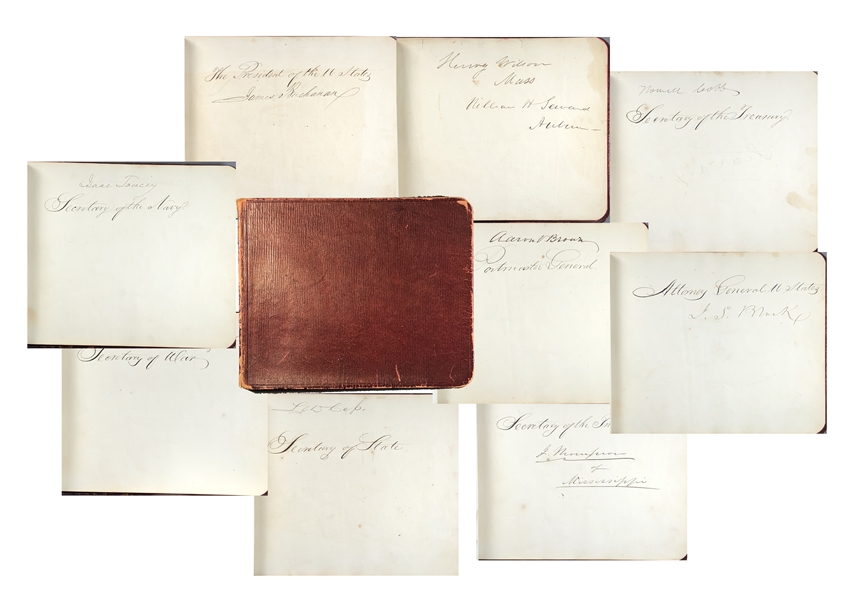 The President of the U States
James Buchanan
Henry Wilson
Mass
William H Seward
Auburn
Howell Cobb
Secretary of the Treasury
Isaac Toucey
Secretary of the Navy
Aaron V Brown
Postmaster General
Attorney General U States
J. S. Black
Secretary of War
Secretary of State
Secretary of the
J Thompson
of
Mississippi